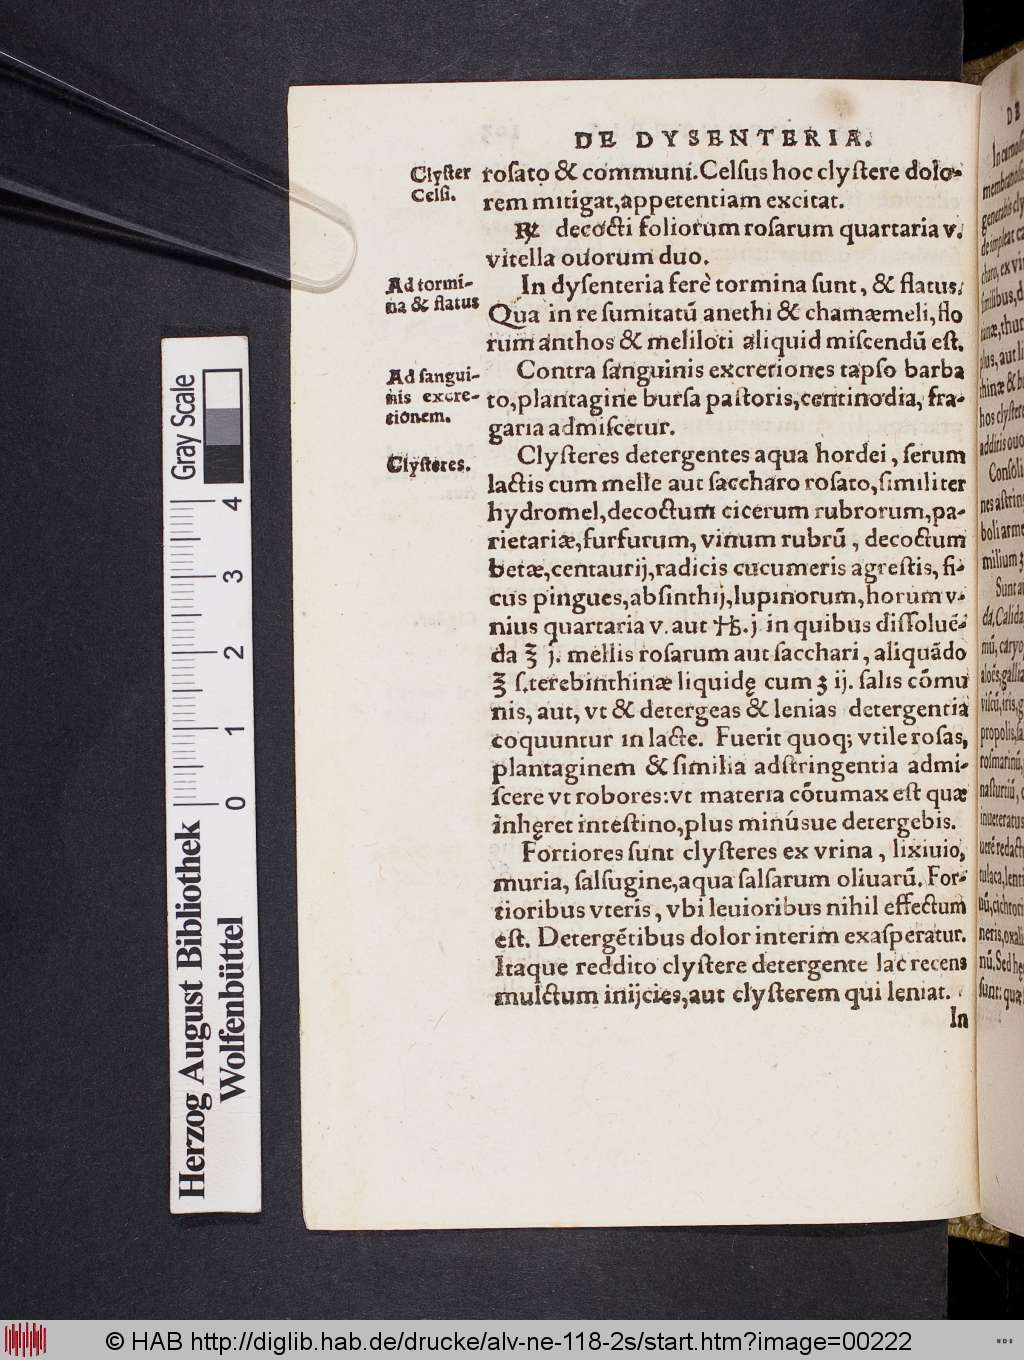 DE DYSENTERIA.
Clyſter
Celſi.
roſato & communi. Celſus hoc clyſtere dolo-
rem mitigat, appetentiam excitat.
℞ decocti foliorum roſarum quartaria v.
vitella ouorum duo.
Ad tormi-
na & flatus
In dyſenteria ferè tormina ſunt, & flatus.
Qua in re ſumitatū anethi & chamæmeli, flo
rum anthos & meliloti aliquid miſcendū eſt.
Ad ſangui-
nis excre-
tionem.
Contra ſanguinis excretiones tapſo barba
to, plantagine burſa paſtoris, centinodia, fra-
garia admiſcetur.
Clyſteres.
Clyſteres detergentes aqua hordei, ſerum
lactis cum melle aut ſaccharo roſato, ſimiliter
hydromel, decoctum cicerum rubrorum, pa-
rietariæ, furfurum, vinum rubrū, decoctum
betæ, centaurij, radicis cucumeris agreſtis, fi-
cus pingues, abſinthij, lupinorum, horum v-
nius quartaria v. aut j. in quibus diſſoluē-
da ℥ j. mellis roſarum aut ſacchari, aliquādo
℥ ſ. terebinthinæ liquidę cum ʒ ij. ſalis cōmu
nis, aut, vt & detergeas & lenias detergentia
coquuntur in lacte. Fuerit quoq; vtile roſas,
plantaginem & ſimilia adſtringentia admi-
ſcere vt robores: vt materia cōtumax eſt quæ
inhęret inteſtino, plus minúsue detergebis.
Fortiores ſunt clyſteres ex vrina, lixiuio,
muria, ſalſugine, aqua ſalſarum oliuarū. For-
tioribus vteris, vbi leuioribus nihil effectum
eſt. Detergētibus dolor interim exaſperatur.
Itaque reddito clyſtere detergente lac recens
mulctum inijcies, aut clyſterem qui leniat.
In
Gray Scale
4
3
2
1
0
Herzog August Bibliothek
Wolfenbüttel
© HAB http://diglib.hab.de/drucke/alv-ne-118-2s/start.htm?image=00222